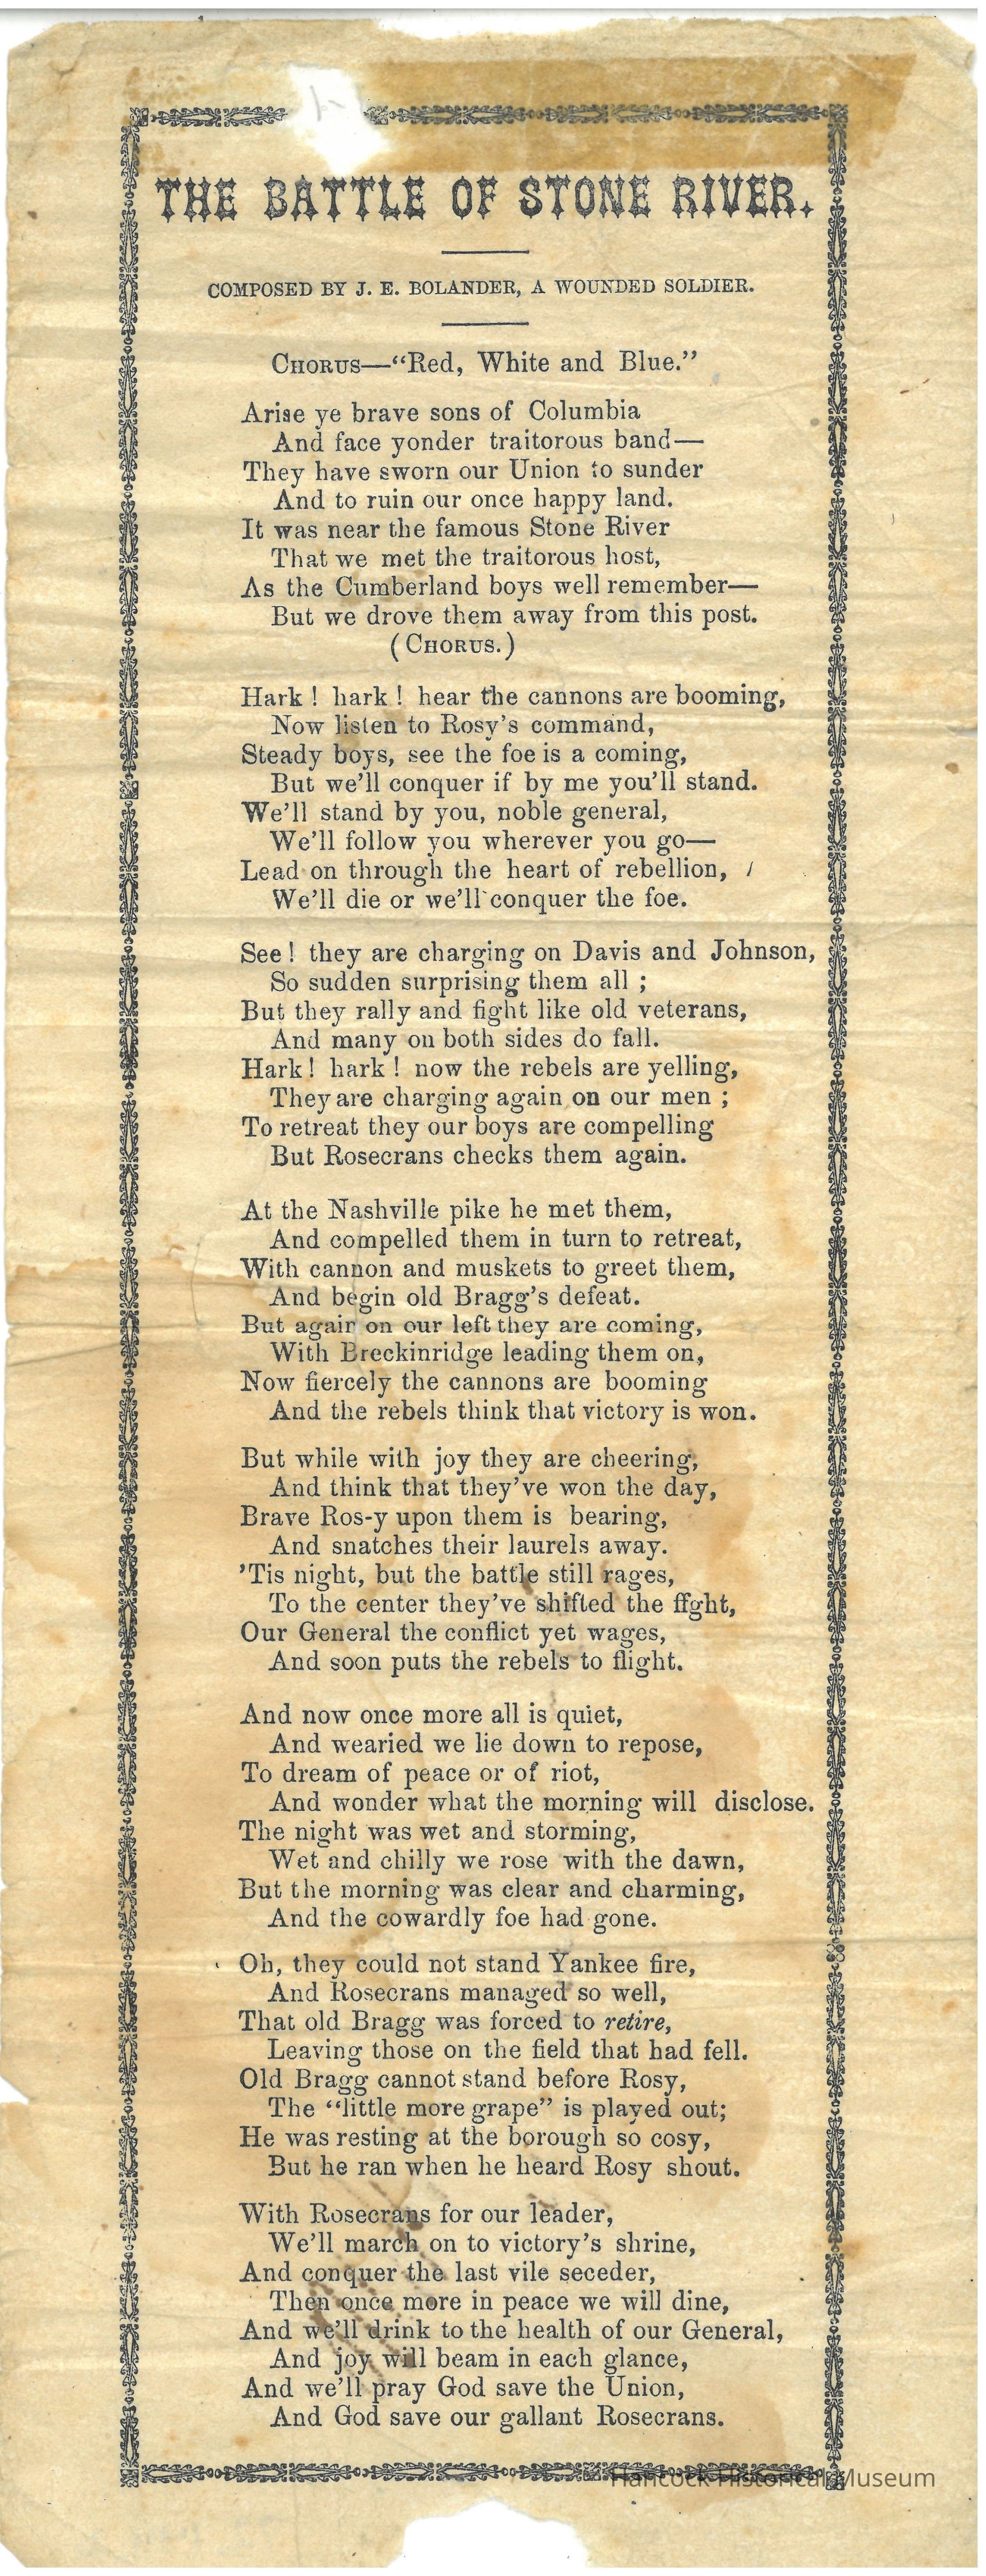 THE BATTLE OF STONE RIVER.
COMPOSED BY J. E. BOLANDER, A WOUNDED SOLDIER.
CHORUS—“Red, White and Blue.”
Arise ye brave sons of Columbia
And face yonder traitorous band—
They have sworn our Union to sunder
And to ruin our once happy land.
It was near the famous Stone River
That we met the traitorous host,
As the Cumberland boys well remember—
But we drove them away from this post.
(CHORUS.)
Hark ! hark ! hear the cannons are booming,
Now listen to Rosy’s command,
Steady boys, see the foe is a coming,
But we’ll conquer if by me you’ll stand.
We’ll stand by you, noble general,
We’ll follow you wherever you go—
Lead on through the heart of rebellion,
We’ll die or we’ll conquer the foe.
See ! they are charging on Davis and Johnson,
So sudden surprising them all ;
But they rally and fight like old veterans,
And many on both sides do fall.
Hark ! hark ! now the rebels are yelling,
They are charging again on our men ;
To retreat they our boys are compelling
But Rosecrans checks them again.
At the Nashville pike he met them,
And compelled them in turn to retreat,
With cannon and muskets to greet them,
And begin old Bragg’s defeat.
But again on our left they are coming,
With Breckinridge leading them on,
Now fiercely the cannons are booming
And the rebels think that victory is won.
But while with joy they are cheering,
And think that they’ve won the day,
Brave Ros-y upon them is bearing,
And snatches their laurels away.
’Tis night, but the battle still rages,
To the center they’ve shifted the ffght,
Our General the conflict yet wages,
And soon puts the rebels to flight.
And now once more all is quiet,
And wearied we lie down to repose,
To dream of peace or of riot,
And wonder what the morning will disclose.
The night was wet and storming,
Wet and chilly we rose with the dawn,
But the morning was clear and charming,
And the cowardly foe had gone.
Oh, they could not stand Yankee fire,
And Rosecrans managed so well,
That old Bragg was forced to retire,
Leaving those on the field that had fell.
Old Bragg cannot stand before Rosy,
The “little more grape” is played out;
He was resting at the borough so cosy,
But he ran when he heard Rosy shout.
With Rosecrans for our leader,
We’ll march on to victory’s shrine,
And conquer the last vile seceder,
Then once more in peace we will dine,
And we’ll drink to the health of our General,
And joy will beam in each glance,
And we’ll pray God save the Union,
And God save our gallant Rosecrans.
Hancock Historical Museum